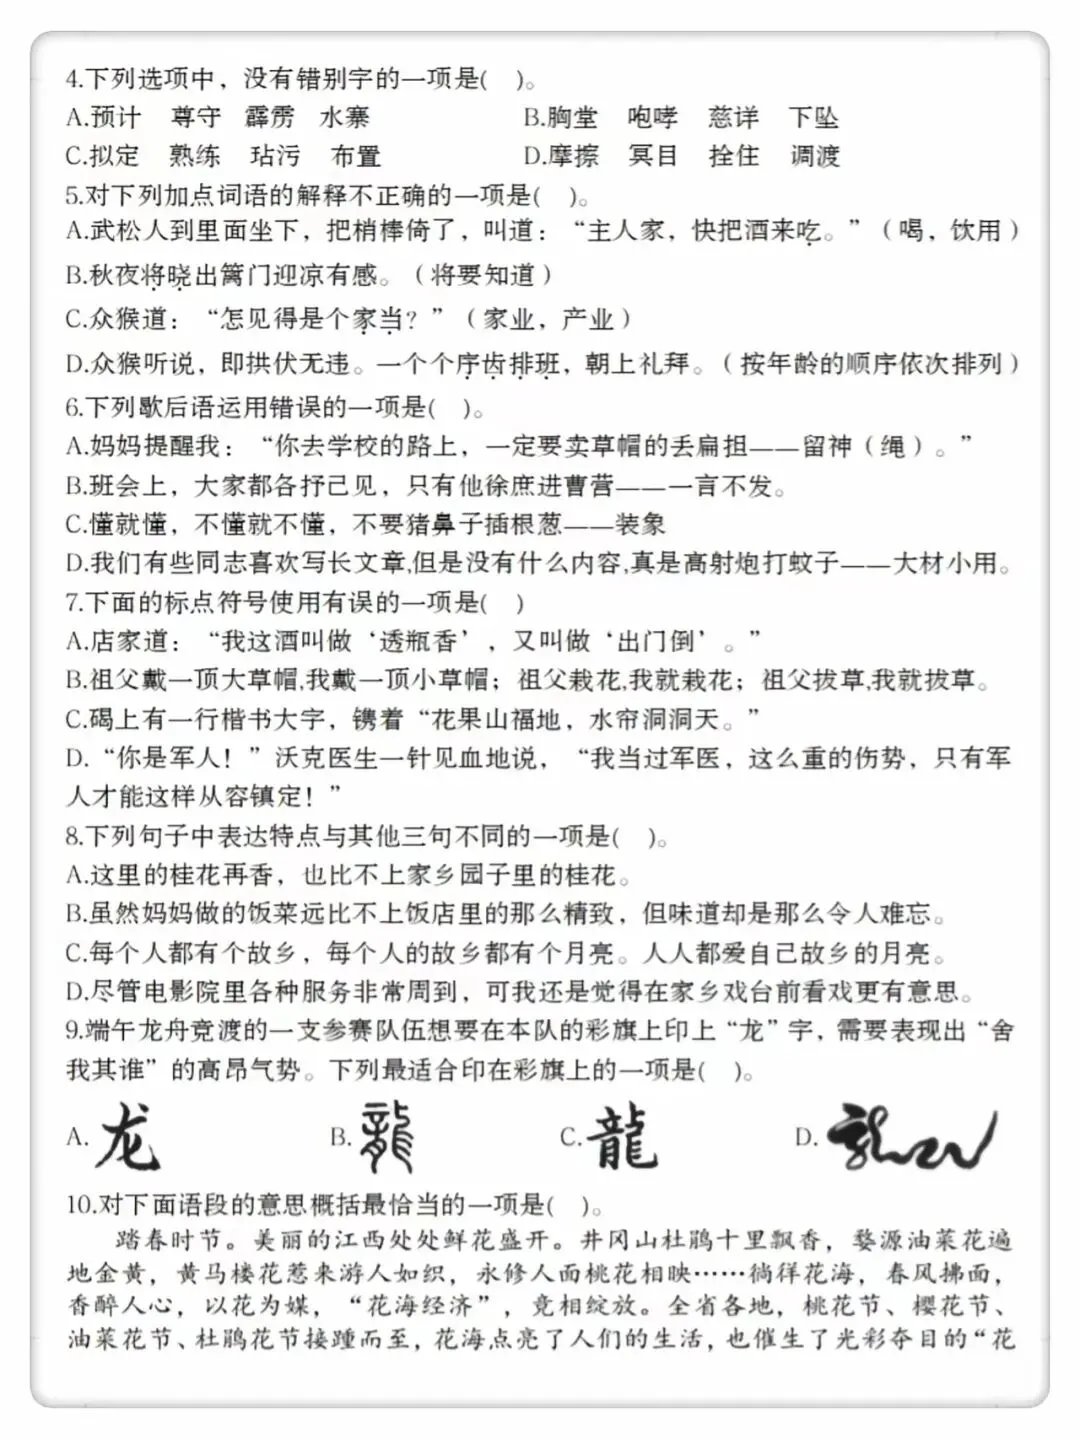 4.下列选项中，没有错别字的一项是(　)。
A.预计　尊守　霹雳　水寨　　B.胸堂　咆哮　慈详　下坠
C.拟定　熟练　玷污　布置　　D.摩擦　冥目　拴住　调渡
5.对下列加点词语的解释不正确的一项是(　)。
A.武松人到里面坐下，把梢棒倚了，叫道：“主人家，快把酒来吃。”（喝，饮用）
B.秋夜将晓出篱门迎凉有感。（将要知道）
C.众猴道：“怎见得是个家当？”（家业，产业）
D.众猴听说，即拱伏无违。一个个序齿排班，朝上礼拜。（按年龄的顺序依次排列）
6.下列歇后语运用错误的一项是(　)。
A.妈妈提醒我：“你去学校的路上，一定要卖草帽的丢扁担——留神（绳）。”
B.班会上，大家都各抒己见，只有他徐庶进曹营——一言不发。
C.懂就懂，不懂就不懂，不要猪鼻子插根葱——装象
D.我们有些同志喜欢写长文章,但是没有什么内容,真是高射炮打蚊子——大材小用。
7.下面的标点符号使用有误的一项是(　)
A.店家道：“我这酒叫做‘透瓶香’，又叫做‘出门倒’。”
B.祖父戴一顶大草帽,我戴一顶小草帽；祖父栽花,我就栽花；祖父拔草,我就拔草。
C.碣上有一行楷书大字，镌着“花果山福地，水帘洞洞天。”
D.“你是军人！”沃克医生一针见血地说，“我当过军医，这么重的伤势，只有军
人才能这样从容镇定！”
8.下列句子中表达特点与其他三句不同的一项是(　)。
A.这里的桂花再香，也比不上家乡园子里的桂花。
B.虽然妈妈做的饭菜远比不上饭店里的那么精致，但味道却是那么令人难忘。
C.每个人都有个故乡，每个人的故乡都有个月亮。人人都爱自己故乡的月亮。
D.尽管电影院里各种服务非常周到，可我还是觉得在家乡戏台前看戏更有意思。
9.端午龙舟竞渡的一支参赛队伍想要在本队的彩旗上印上“龙”字，需要表现出“舍
我其谁”的高昂气势。下列最适合印在彩旗上的一项是(　)。
A.龙　B.龍　C.龍　D.龍
10.对下面语段的意思概括最恰当的一项是(　)。
踏春时节。美丽的江西处处鲜花盛开。井冈山杜鹃十里飘香，婺源油菜花遍
地金黄，黄马楼花惹来游人如织，永修人面桃花相映……徜徉花海，春风拂面，
香醉人心，以花为媒，“花海经济”，竞相绽放。全省各地，桃花节、樱花节、
油菜花节、杜鹃花节接踵而至，花海点亮了人们的生活，也催生了光彩夺目的“花